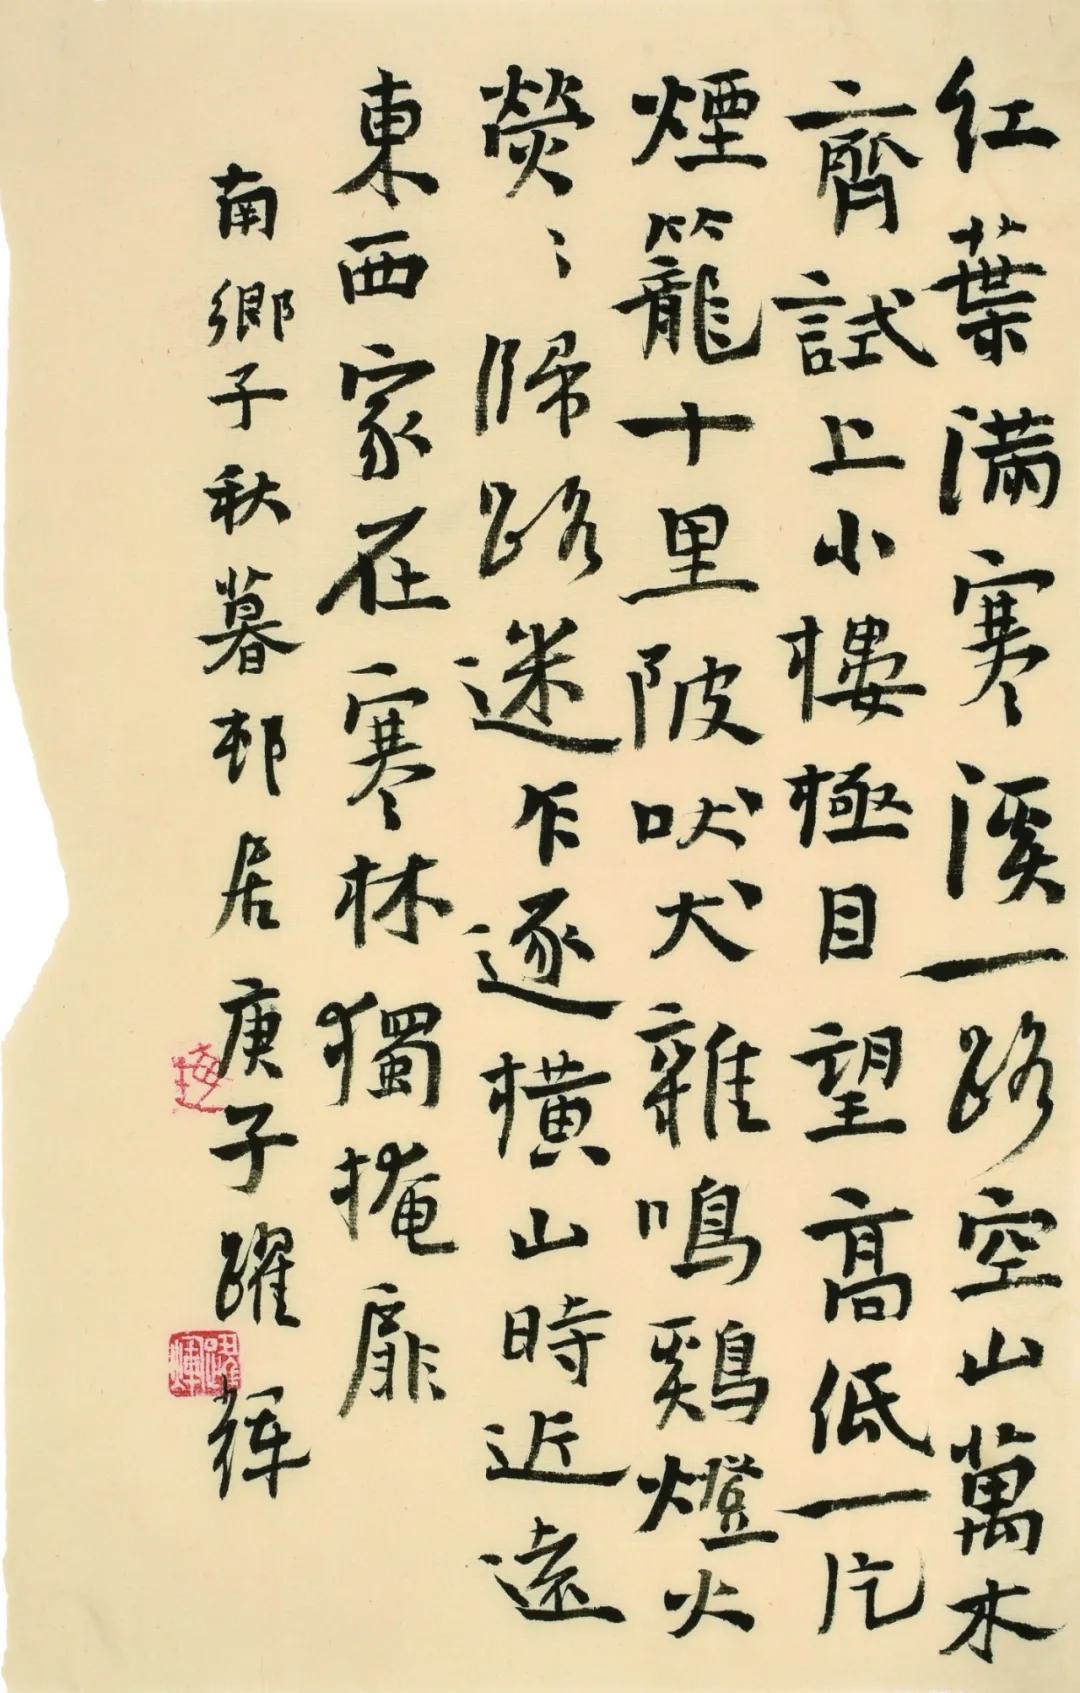 红葉满寒溪一路空山萬木
齊試上小樓極目望高低一片
煙籠十里陂吠犬雜鳴鷄燈火
熒〻歸路迷乍逐橫山時近遠
東西家在寒林獨掩扉
南鄉子秋暮邨居庚子躍輝
躍輝